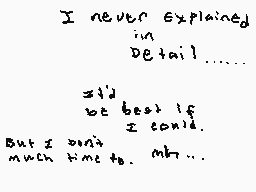 I never explained
in
Detail......
It'd
be best if
I could.
But I Don't
much time to. mh...